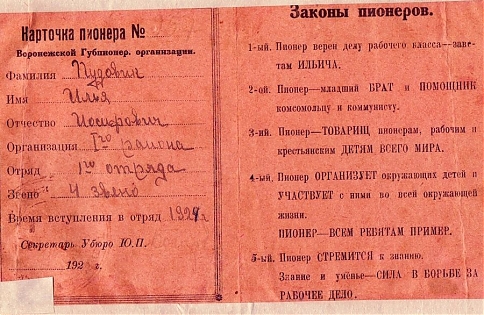 Карточка пионера №
Воронежской Губпионер. организации.
Фамилия Пудович
Имя Илья
Отчество Иосифович
Организация I го района
Отряд 1го отряда
Звено 4 звено
Время вступления в отряд 1924 г
Секретарь Убюро Ю.П.
192 г.
Законы пионеров.
1-ый. Пионер верен делу рабочего класса—заве-
там ИЛЬИЧА.
2-ой. Пионер—младший БРАТ и ПОМОЩНИК
комсомольцу и коммунисту.
3-ий. Пионер—ТОВАРИЩ пионерам, рабочим и
крестьянским ДЕТЯМ ВСЕГО МИРА.
4-ый. Пионер ОРГАНИЗУЕТ окружающих детей и
УЧАСТВУЕТ с ними во всей окружающей
жизни.
ПИОНЕР—ВСЕМ РЕБЯТАМ ПРИМЕР.
5-ый. Пионер СТРЕМИТСЯ к знанию.
Знание и уменье—СИЛА В БОРЬБЕ ЗА
РАБОЧЕЕ ДЕЛО.